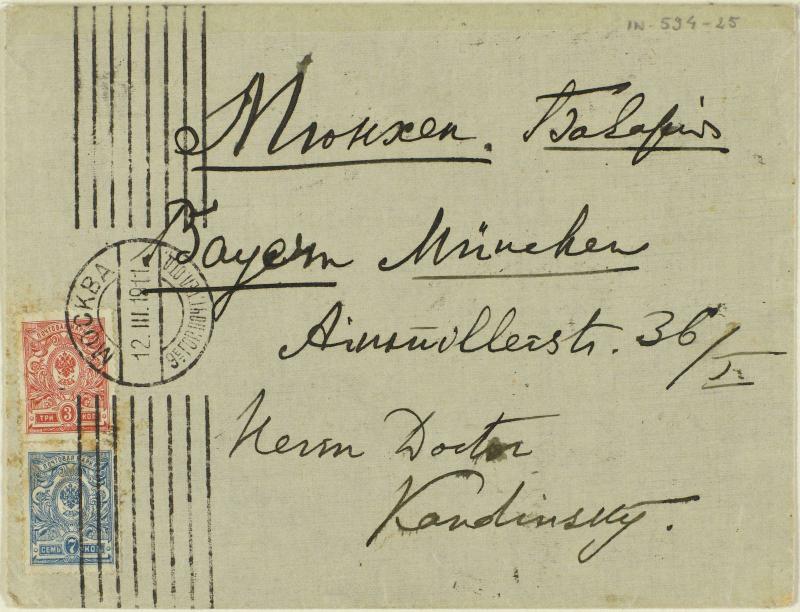 IN-594-25
Мюнхен. Бавария
Bayern München
Ainmillerstr. 36/I
Herrn Doctor
Kandinsky.
МОСКВА
12.III.1911
ПОЧТОВАЯ МАРКА
ТРИ 3 КОП
ПОЧТОВАЯ МАРКА
СЕМЬ 7 КОП